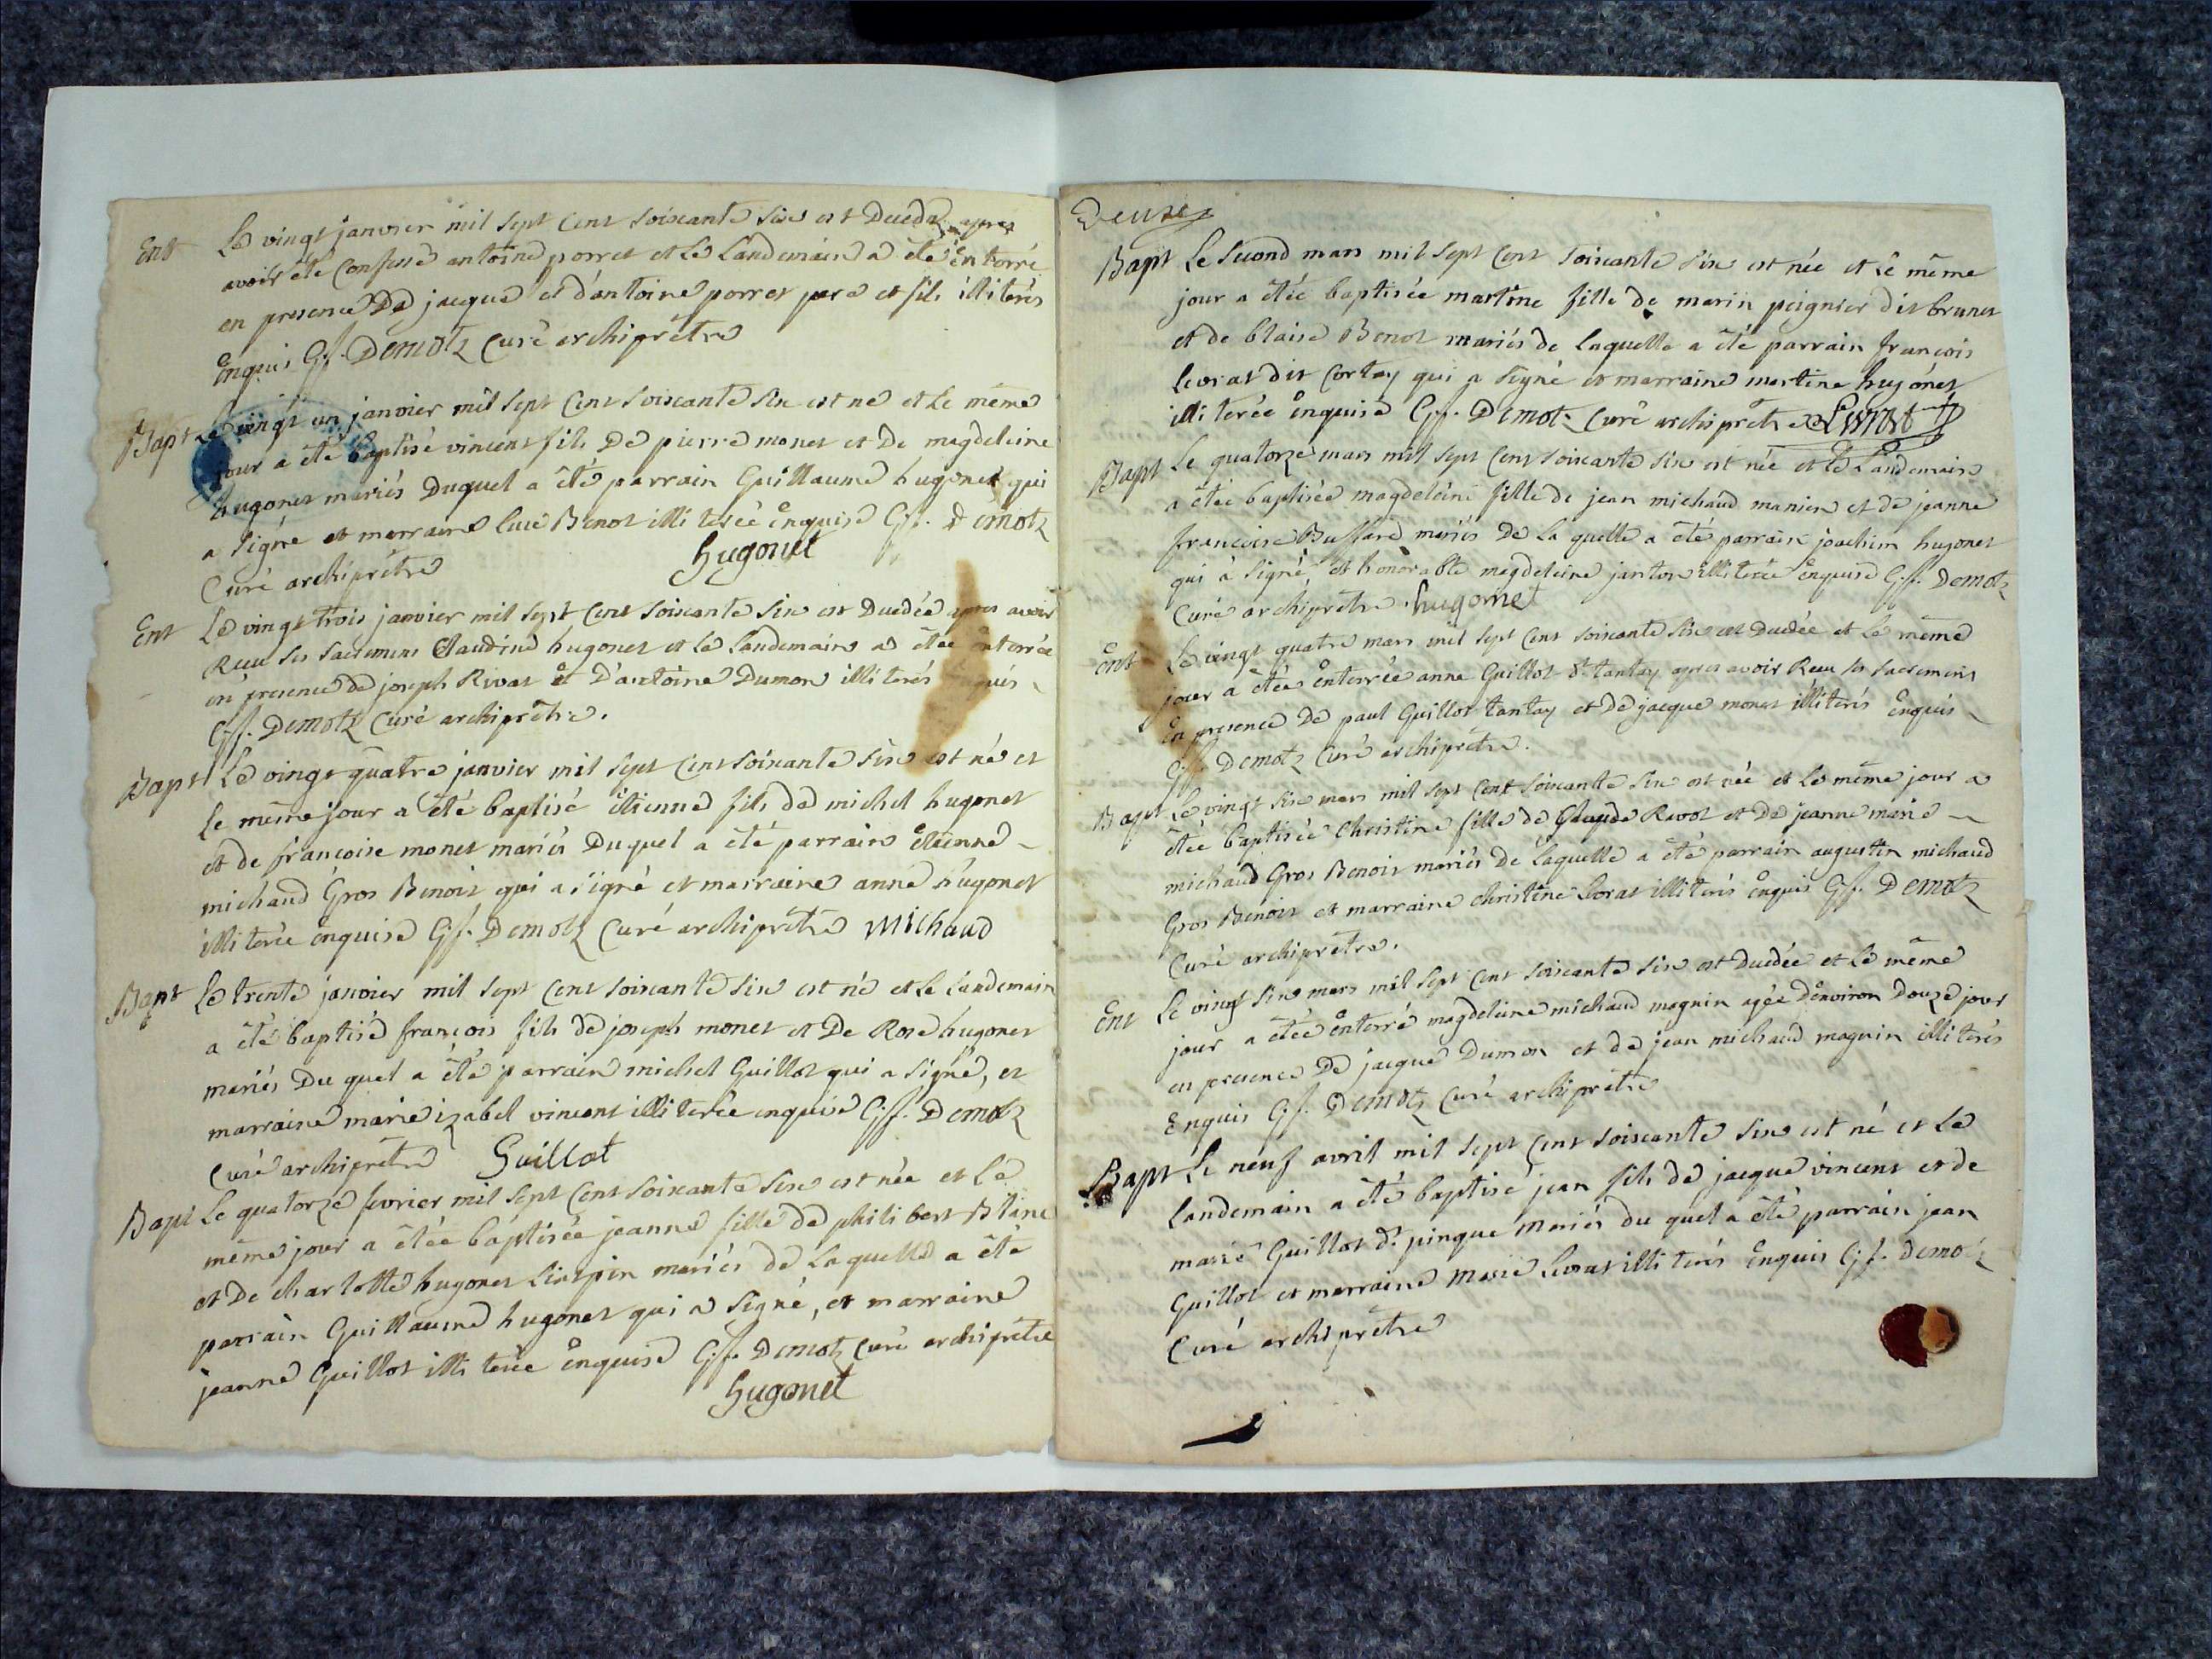 Ent Le vingt janvier mil sept cent soixante six est decedé apres
avoir été confessé antoine porret et le landemain a été enterré
en presence de jacque et d'antoine porret pere et fils illiterés
enquis G. f. Demotz curé archiprêtre
Bapt Le vingt un janvier mil sept cent soixante six est né et le même
jour a été baptisé vincent fils de pierre monet et de magdeleine
hugonet mariés duquel a été parrain Guillaume hugonet qui
a signé et marraine luce Benot illiterée enquise G. f. Demotz
curé archiprêtre hugonet
Ent Le vingt trois janvier mil sept cent soixante six est decedée apres avoir
Receu ses sacremens Claudine hugonet et le landemain a étée enterrée
en presence de joseph Rivat et d'antoine Dumon illiterés enquis
G. f. Demotz curé archiprêtre.
Bapt Le vingt quatre janvier mil sept cent soixante six est né et
le même jour a été baptisé étienne fils de michel hugonet
et de francoise monet mariés duquel a été parrain étienne
michaud Gros Benoit qui a signé et marraine anne hugonet
illiterée enquise G. f. Demotz curé archiprêtre Michaud
Bapt Le trente janvier mil sept cent soixante six est né et le landemain
a été baptisé françois fils de joseph monet et de Rose hugonet
mariés du quel a été parrain michel Guillot qui a signé, et
marraine marie izabel vincent illiterée enquise G. f. Demotz
curé archiprêtre Guillot
Bapt Le quatorze fevrier mil sept cent soixante six est née et le
même jour a étée baptisée jeanne fille de philibert Blanc
et de charlotte hugonet Liaipin mariés de laquelle a été
parrain Guillaume hugonet qui a signé, et marraine
jeanne Guillot illiterée enquise G. f. Demotz curé archiprêtre
hugonet
Deuxe
Bapt Le second mars mil sept cent soixante six est née et le même
jour a étée baptisée martine fille de marin peignier dit brunet
et de blaise Benot mariés de laquelle a été parrain françois
Levrat dit Cortay qui a signé et marraine martine hugonet
illiterée enquise G. f. Demotz curé archiprêtre Levrat
Bapt Le quatorze mars mil sept cent soixante six est née et le landemain
a étée baptisée magdeleine fille de jean michaud manien et de jeanne
francoise Buffard mariés de la quelle a été parrain joachim hugonet
qui a signé, et honorable magdeleine janton illiterée enquise G. f. Demotz
curé archiprêtre hugonet
Ent Le vingt quatre mars mil sept cent soixante six est decedée et le même
jour a étée enterrée anne Guillot dt. tantay apres avoir Receu les sacremens
en presence de paul Guillot tantay et de jacque monet illiterés enquis
G. f. Demotz curé archiprêtre.
Bapt Le vingt six mars mil sept cent soixante six est née et le même jour a
étée baptisée Christine fille de Claude Rivot et de jeanne marie
michaud Gros Benoit mariés de laquelle a été parrain augustin michaud
Gros Benoit et marraine christine Levrat illiterés enquis G. f. Demotz
curé archiprêtre.
Ent Le vingt six mars mil sept cent soixante six est decedée et le même
jour a étée enterré magdeleine michaud magnin agée d'environ douze jours
en presence de jacque Dumon et de jean michaud magnin illiterés
enquis G. f. Demotz curé archiprêtre
Bapt Le neuf avril mil sept cent soixante six est né et le
landemain a été baptisé jean fils de jacque vincent et de
marie Guillot dt. pinque mariés du quel a été parrain jean
Guillot et marraine Marie Levrat illiterés enquis G. f. Demotz
curé archiprêtre